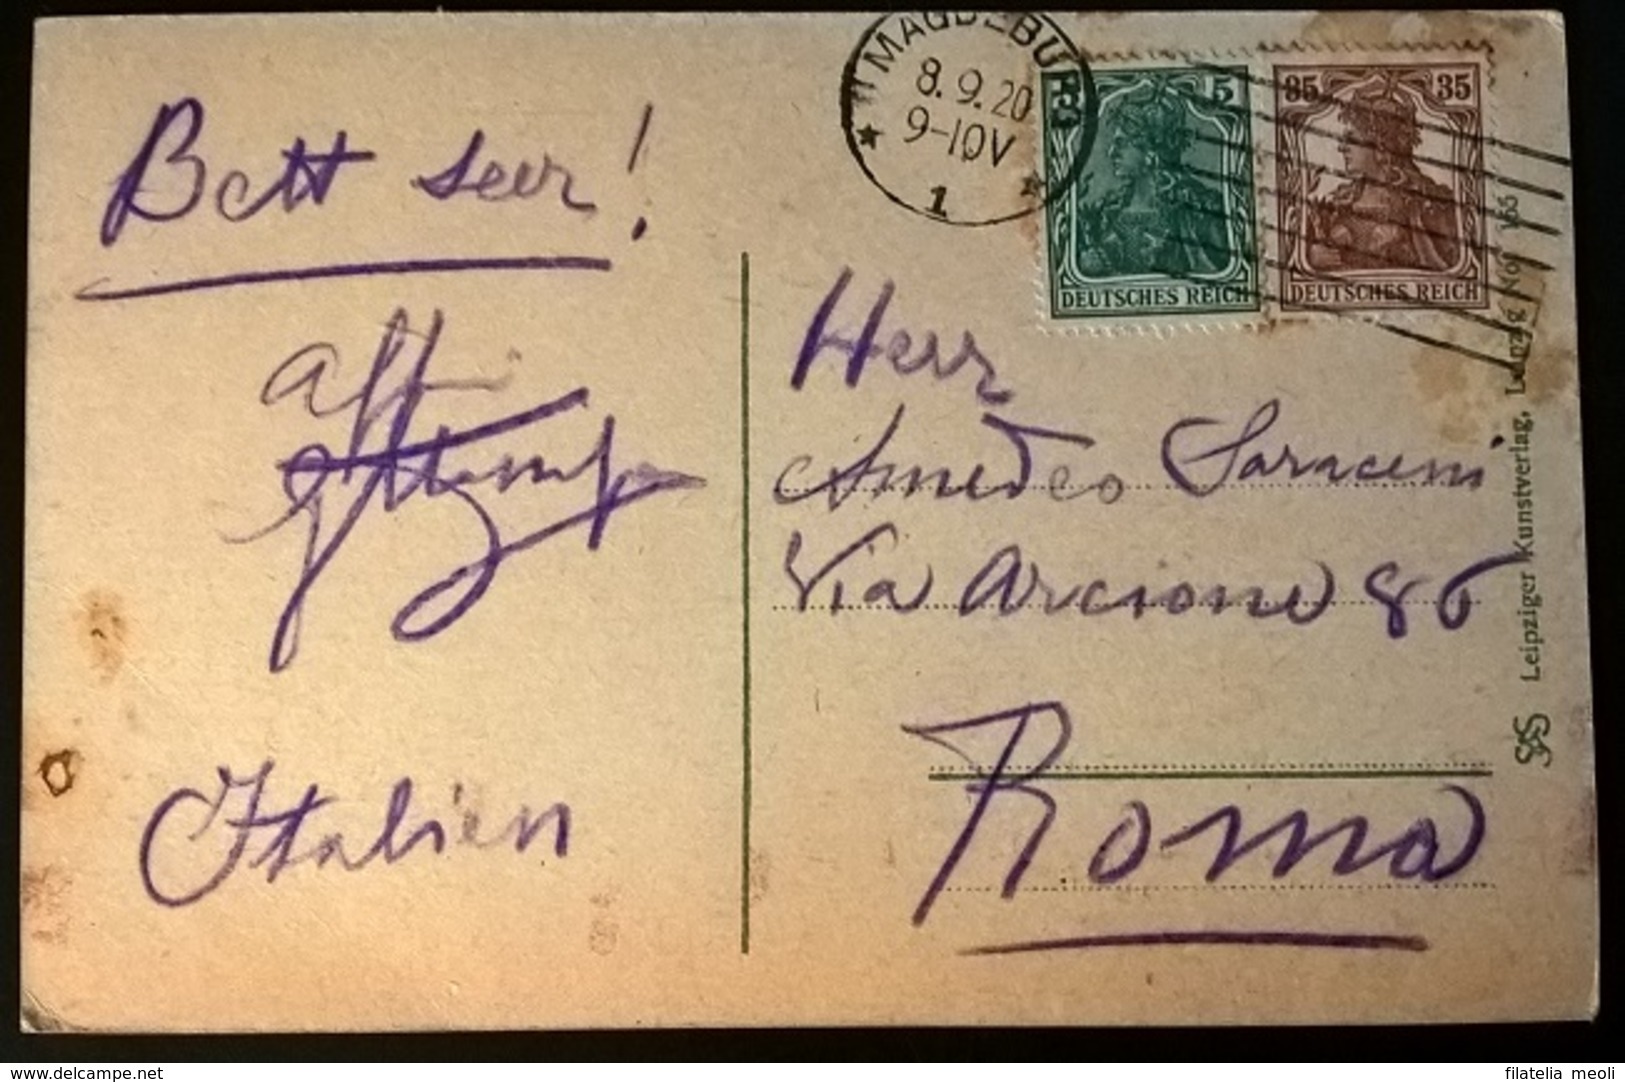 MAGDEBURG
8.9.20
9-10V
1
5
DEUTSCHES REICH
35 35
DEUTSCHES REICH
Italien
Herr
Amedeo Saraceni
Via Arcione 86
Roma
Leipziger Kunstverlag, Leipzig
www.delcampe.net
filatelia meoli